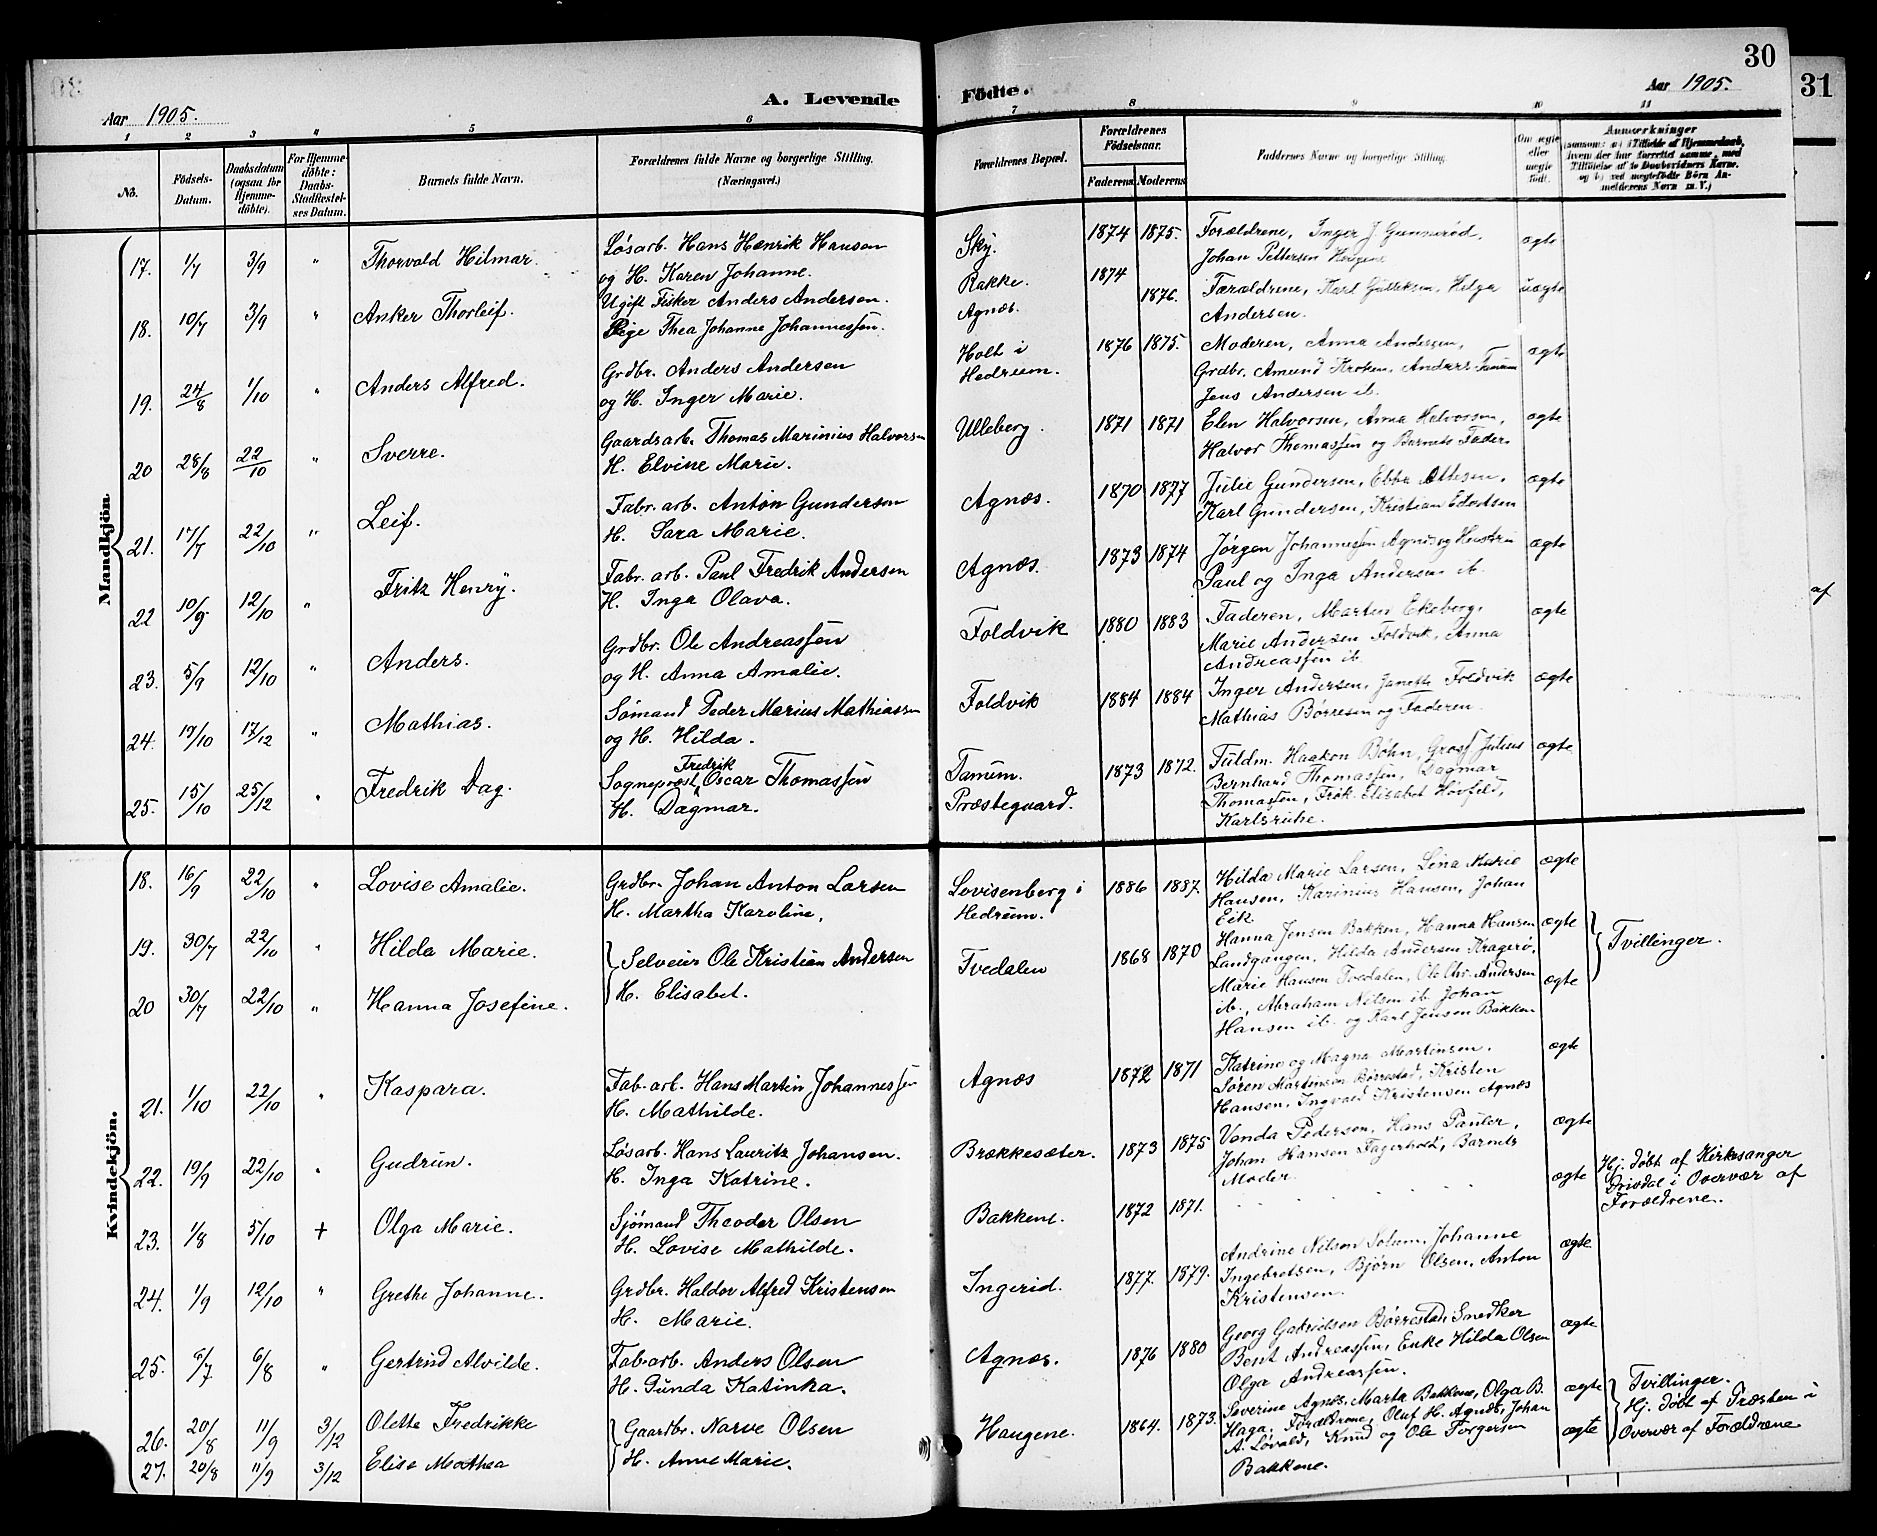 30
31
Aar 1905.
A. Levende
Födte.
Aar 1905.
1 2 3 4 5 6 7 8 9 10 11
No.
Födsels-
Datum.
Daabsdatum
(ogsaa for
Hjemme-
döbte).
For Hjemme-
döbte:
Daabs-
Stadfæstel-
ses Datum.
Barnets fulde Navn.
Forældrenes fulde Navne og borgerlige Stilling.
(Næringsvei.)
Forældrenes Bopæl.
Forældrenes
Födselsaar.
Faderens Moderens
Faddernes Navne og borgerlige Stilling.
Om ægte
eller
uægte
født.
Anmærkninger
Mandkjön
17. 1/7 3/9 " Thorvald Hilmar.
Løsarb. Hans Henrik Hansen
og H. Karen Johanne.
Sky.
1874 1875.
Forældrene, Inger J. Gunnerød,
Johan Pettersen Haugene
ægte
18. 10/7 3/9 " Anker Thorleif.
Ugift Fisker Anders Andersen.
Pige Thea Johanne Johannessen.
Rakke.
Agnæs.
1874
1876.
Forældrene, Karl Gulliksen, Helga
Andersen.
uægte
19. 24/8 1/10 " Anders Alfred.
Grdbr. Anders Andersen
og H. Inger Marie.
Holt i
Hedrum.
1876 1875.
Moderen, Anna Andersen,
Grdbr. Amund Kroken, Anders Tanum
Jens Andersen ib.
ægte
20 28/8 22/10 " Sverre.
Gaardsarb. Thomas Marinius Halvorsen
H. Elvine Marie.
Ulleberg.
1871 1871
Elen Halvorsen, Anna Halvorsen,
Halvor Thomassen og Barnets Fader.
ægte
21. 17/7 22/10 " Leif.
Fabr. arb. Anton Gundersen
H. Sara Marie.
Agnæs.
1870 1877
Julie Gundersen, Ebba Ottesen,
Karl Gundersen, Kristian Edvartsen
ægte
22 10/9 12/10 " Fritz Henry.
Fabr. arb. Paul Fredrik Andersen
H. Inga Olava.
Agnæs.
1873 1874
Jørgen Johannessen Agnæs og Hustru
Paul og Inga Andersen ib.
ægte
23. 5/9 12/10 " Anders.
Grdbr. Ole Andreassen
og H. Anna Amalie.
Foldvik
1880 1883
Faderen, Martin Ekeberg,
Marie Andersen Foldvik, Anna
Andreassen ib.
ægte
24. 19/10 17/12 " Mathias.
Sømand Peder Marius Mathiassen
og H. Hilda.
Foldvik
1884 1884
Inger Andersen, Janette Foldvik
Mathias Børresen og Faderen.
ægte
25. 15/10 25/12 " Fredrik Dag.
Sogneprest Fredrik Oscar Thomassen
H. Dagmar.
Tanum.
Præstegaard.
1873 1872.
Fuldm. Haakon Bøhn, Gross. Julius
Bernhard Thomassen, Dagmar
Thomassen, Frøk. Elisabet Hovfeld,
Karlsruhe.
ægte
Kvindekjön.
18. 16/9 22/10 " Lovise Amalie.
Grdbr. Johan Anton Larsen
H. Martha Karoline,
Lovisenberg i
Hedrum.
1886 1887
Hilda Marie Larsen, Lina Marie
Hansen, Karinius Hansen, Johan
Eik
ægte
19. 30/7 22/10 " Hilda Marie.
20 30/7 22/10 " Hanna Josefine.
Selveier Ole Kristian Andersen
H. Elisabet.
Tvedalen
1868 1870
Hanna Jensen Bakken, Hanna Hansen
Landgangen, Hilda Andersen Kragerø,
Marie Hansen Tvedalen, Ole Chr. Andersen
ib., Abraham Nilsen ib. Johan
Hansen ib. og Karl Jensen Bakken
ægte
ægte
Tvillinger.
21. 1/10 22/10 " Kaspara.
Fab. arb. Hans Martin Johannessen
H. Mathilde.
Agnæs
1872 1871
Katrine og Magna Martinsen.
Søren Martinsen Børrestad, Kristen
Hansen, Ingvald Kristensen Agnæs
ægte
22. 19/9 22/10 " Gudrun.
Løsarb. Hans Lauritz Johansen.
H. Inga Katrine.
Brækkesæter.
1873 1875
Venda Pedersen, Hans Pauler,
Johan Hansen Fagerholt, Barnets
Moder.
ægte
23. 1/8 5/10 + Olga Marie.
Sjømand Theodor Olsen
H. Lovise Mathilde.
Bakkene.
1872 1871.
ægte
Hj. døbt af Kirkesanger
Prisdal i Overvær af
Forældrene.
24. 1/9 12/10 " Grethe Johanne.
Grdbr. Haldor Alfred Kristensen
H. Marie.
Ingerid.
1877. 1879.
Andrine Nilsen Solum, Johanne
Ingebretsen, Bjørn Olsen, Anton
Kristensen.
ægte
25. 6/7 6/8 " Gertrud Alvilde.
Fab. arb. Anders Olsen
H. Gunda Katinka.
Agnæs.
1876 1880
Georg Gabrielsen Børrestad, Snedker
Bent Andreassen, Enke Hilda Olsen
Olga Andreassen.
ægte
26. 20/8 11/9 3/12 Olette Fredrikke
27. 20/8 11/9 3/12 Elise Mathea
Gaardbr. Narve Olsen
H. Anne Marie.
Haugene.
1864. 1873.
Severine Agnæs, Marta Bakkene, Olga B.
Haga, Forældrene, Oluf H. Agnæs, Johan
A. Løvald, Knud og Ole Torgersen
Bakkene.
ægte
ægte
Tvillinger.
Hj. døbt af Præsten i
Overvær af Forældrene
af